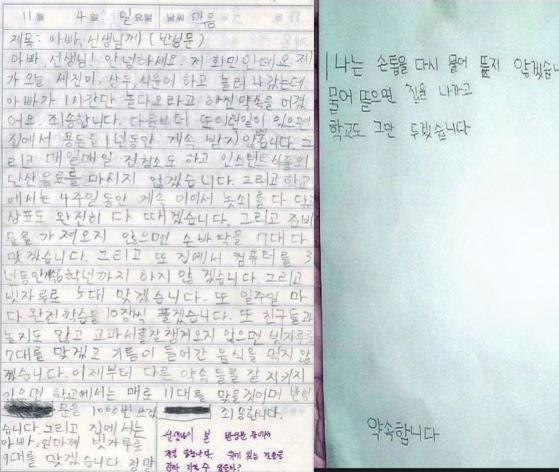 11월 4일 일요일 날씨 맑음
제목: 아빠, 선생님께 (반성문)
아빠, 선생님! 안녕하세요. 저 화민 인데요 제
가 오늘 세진이, 상우 식순이 하고 놀러 나갔는데
아빠가 1시간만 놀다오라고 하신 약속을 어겼
어요. 죄송합니다. 다음부터 또 이런일이 있으면
집에서 용돈을 1년동안 계속 받기 않겠습니다. 그
리고 매일매일 청소도 하고 인스턴트식품와
탄산음료를 마시지 않겠습니다. 그리고 학교
에서는 4주일동안 계속 남아서 를 다 닦고
칠판도 완전히 다 닦겠습니다. 그리고 준비
물을 가져오지 않으면 손바닥을 7대 다
맞겠습니다. 그리고 또 집에서 컴퓨터를 3
년동안 6학년까지 하지 않겠습니다. 그리고
빗자루로 5대 맞겠습니다. 또 일주일 마
다 완전학습을 10장씩 풀겠습니다. 또 친구들과
놀지도 않고 교과서를 잘 챙겨오지 않으면 빗자루로
7대를 맞겠고 기름이 들어간 음식을 먹지 않
겠습니다. 이제부터 다른 약속들을 잘 지키지
않으면 학교에서는 매로 11대를 맞을것이며 반성
문을 1000번 죄송합니다.
습니다 그리고 집에서는
아빠, 엄마께 빗자루로
9대를 맞겠습니다. 정말
선생님이 본 반성문 중에서
제일 길구나. 있는 것들을
과연 지킬 수 있을까?
나는 손톱을 다시 물어 뜯지 않겠습니
물어 뜯으면 집을 나가고
학교도 그만 두겠습니다
약속합니다